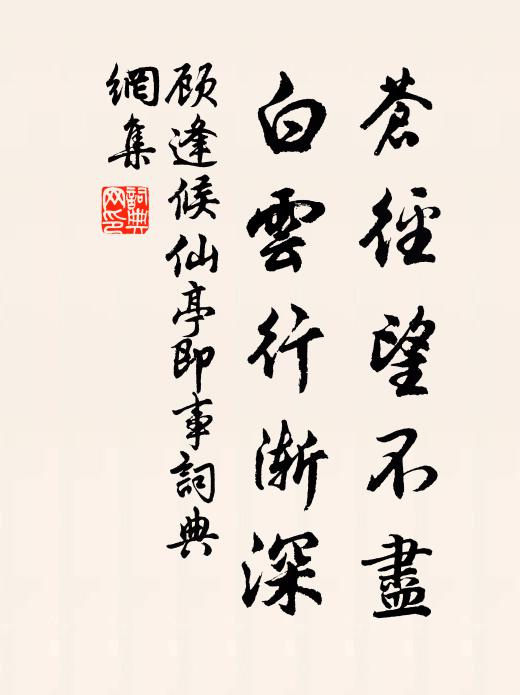 蒼徑望不盡
白雲行漸深
顧逢候仙亭即事詞典
網集
詞典
网印